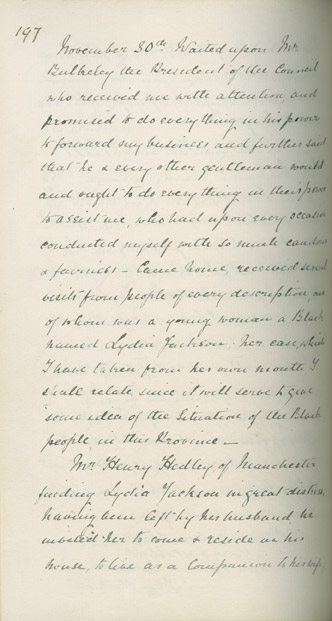 197
November 30th. Waited upon Mr
Bulkeley the President of the Council
who received me with attention, and
promised to do everything in his power
to forward my business and further said
that he & every other gentleman would
and ought to do everything in their power
to assist me, who had upon every occasion
conducted myself with so much candour
& fairness – Came home, received several
visits from people of every description, one
of whom was a young woman a Black
named Lydia Jackson. her case, which
I have taken from her own mouth I
shall relate, since it will serve to give
some idea of the Situation of the Black
people in this Province —
Mr Henry Hedley, of Manchester
finding Lydia Jackson in great distress,
having been left by her husband, he
invited her to come & reside in his
house, to live as a Companion to his wife,